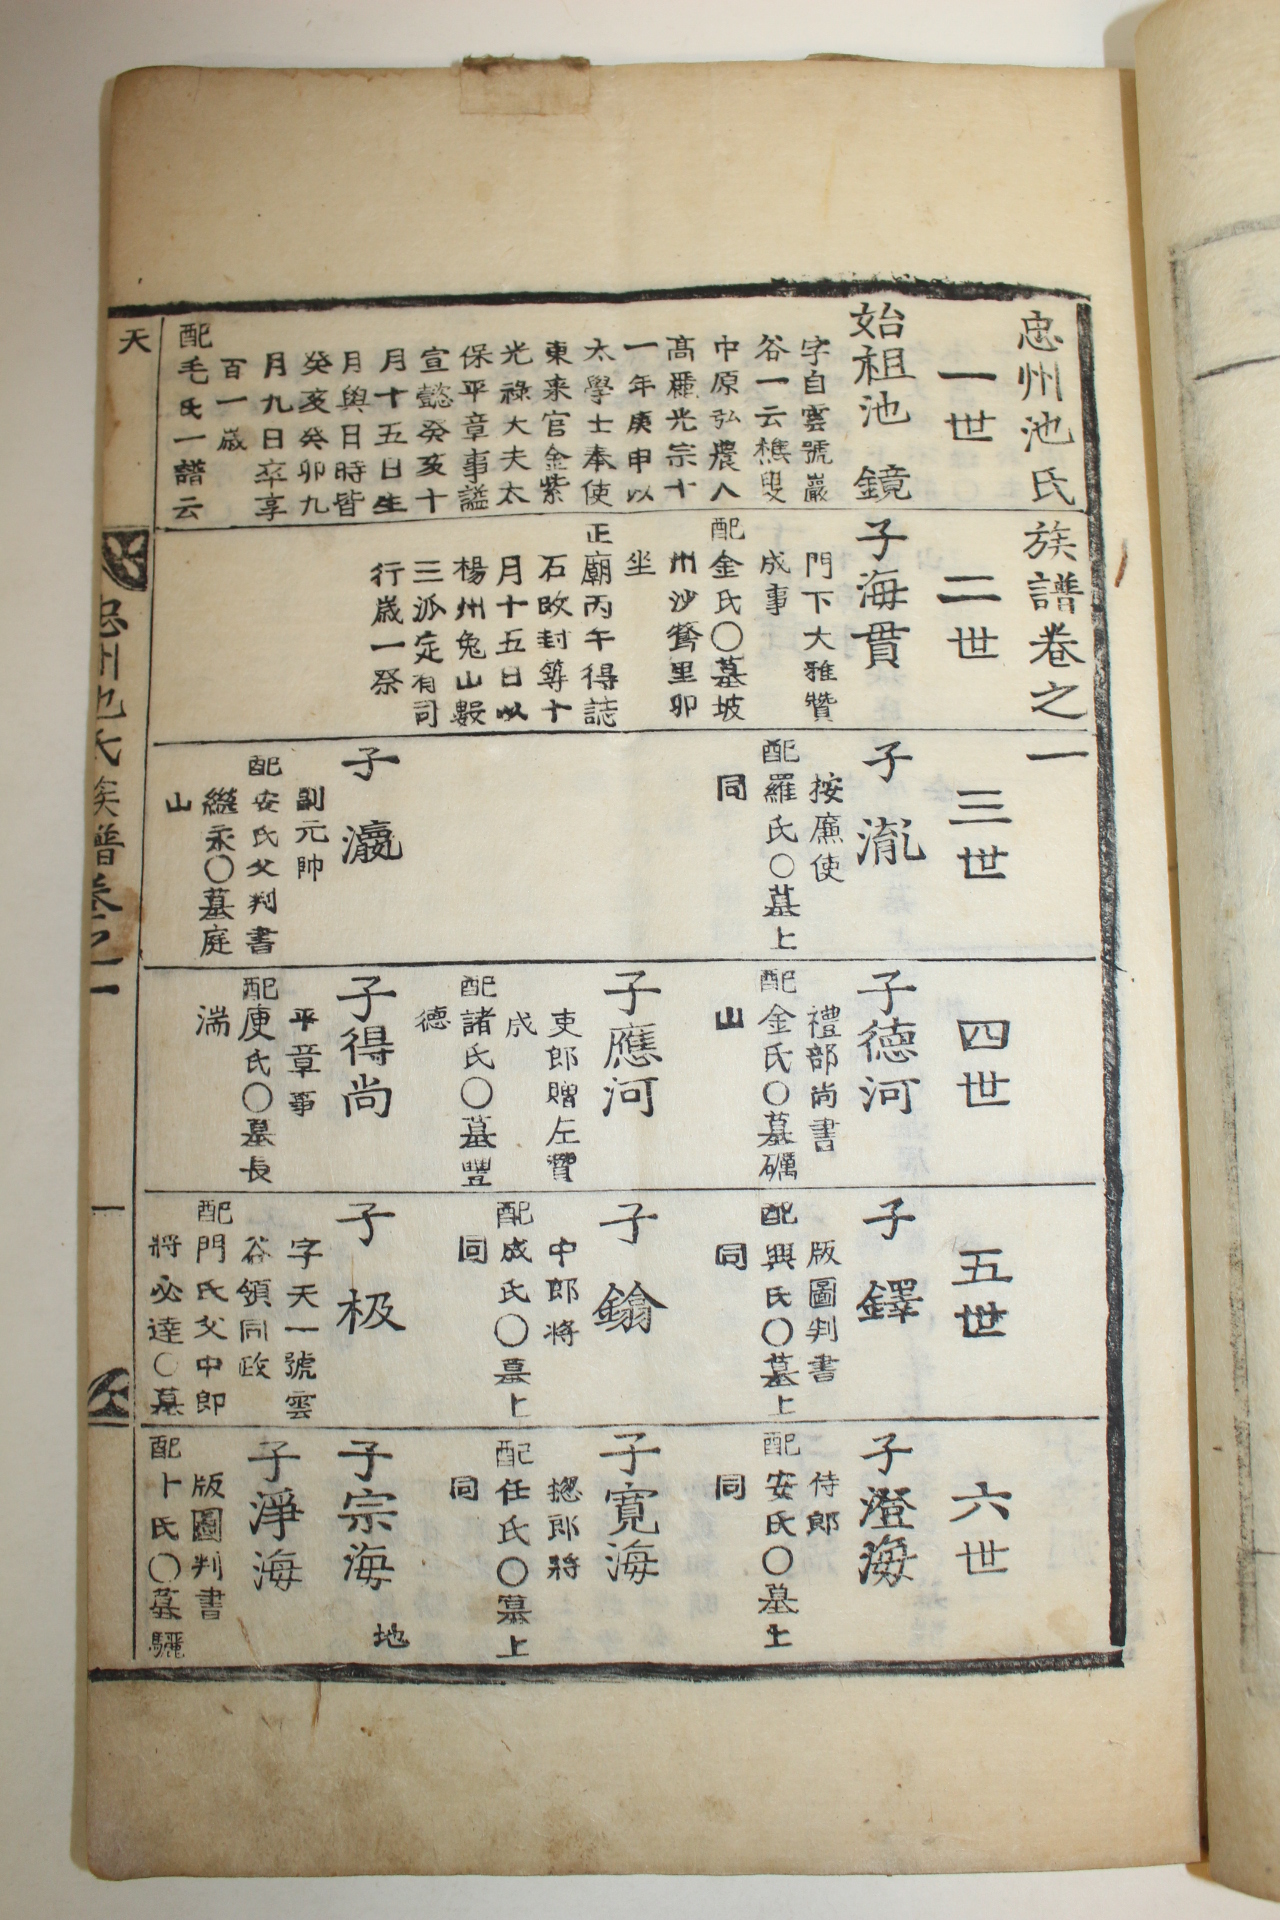 忠州池氏族譜卷之一
一世
始祖池鏡
字自雲號巖
谷一云樵叟
中原弘農人
高麗光宗十
一年庚申以
太學士奉使
東来官金紫
光祿大夫太
保平章事謚
宣懿癸亥十
月十五日生
月與日時皆
癸亥癸卯九
月九日卒享
百一歲
配毛氏一譜云
天
二世
子海貫
門下大雅贊
成事
配金氏〇墓坡
州沙鶩里卯
坐
正廟丙午得誌
石改封築十
月十五日以
楊州兔山數
三派定有司
行歲一祭
三世
子胤
按廉使
配羅氏〇墓上
同
子瀛
副元帥
配安氏父判書
繼永〇墓庭
山
四世
子德河
禮部尚書
配金氏〇墓礪
山
子應河
吏郎贈左贊
成
配諸氏〇墓豐
德
子得尚
平章事
配庾氏〇墓長
湍
五世
子鐸
版圖判書
配興氏〇墓上
同
子鏥
中郎將
配成氏〇墓上
同
子极
字天一號雲
谷領同政
配門氏父中郎
將必達〇墓
六世
子澄海
侍郎
配安氏〇墓上
同
子寬海
摠郎將
配任氏〇墓上
同
子宗海
地
子淨海
版圖判書
配卜氏〇墓驪
忠州池氏族譜卷之一
一